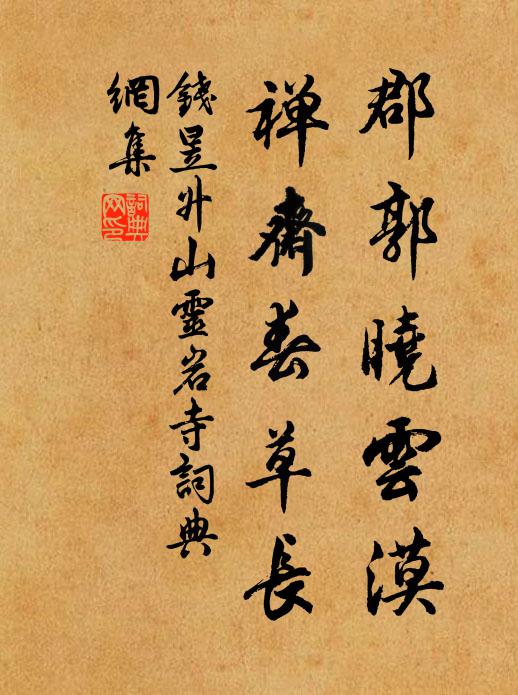 郡郭曉雲漠
禅齋春草長
錢昱外山靈岩寺詞典
網集
詞典網印